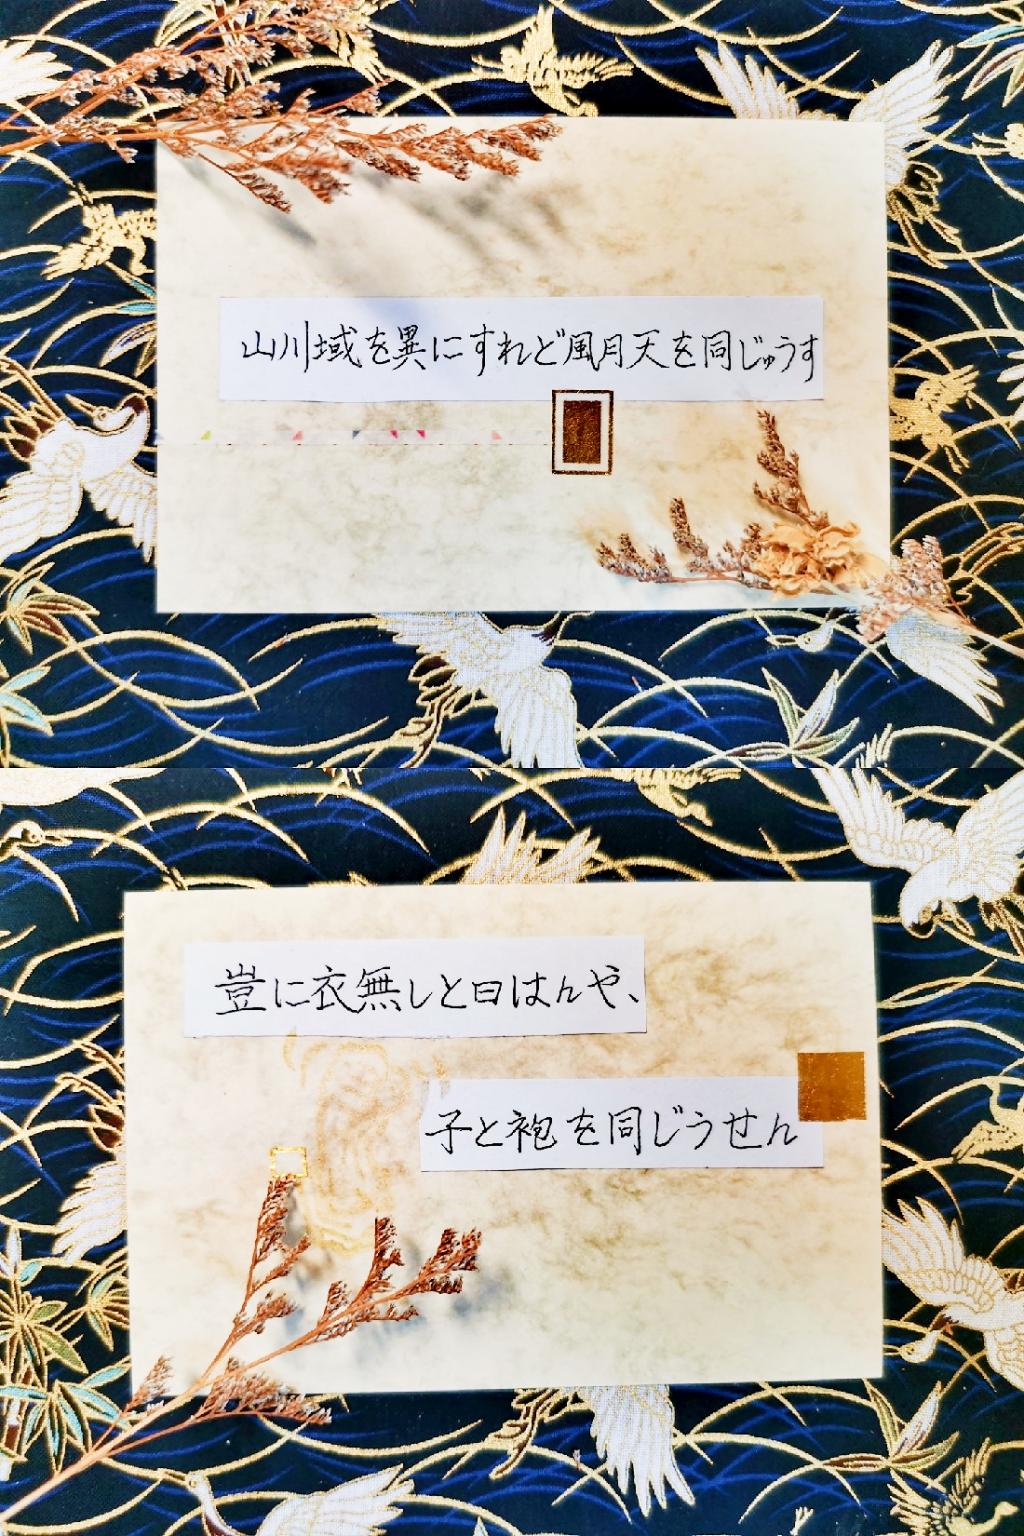 山川域を異にすれど風月天を同じゅうす
豈に衣無しと曰はんや、
子と袍を同じうせん